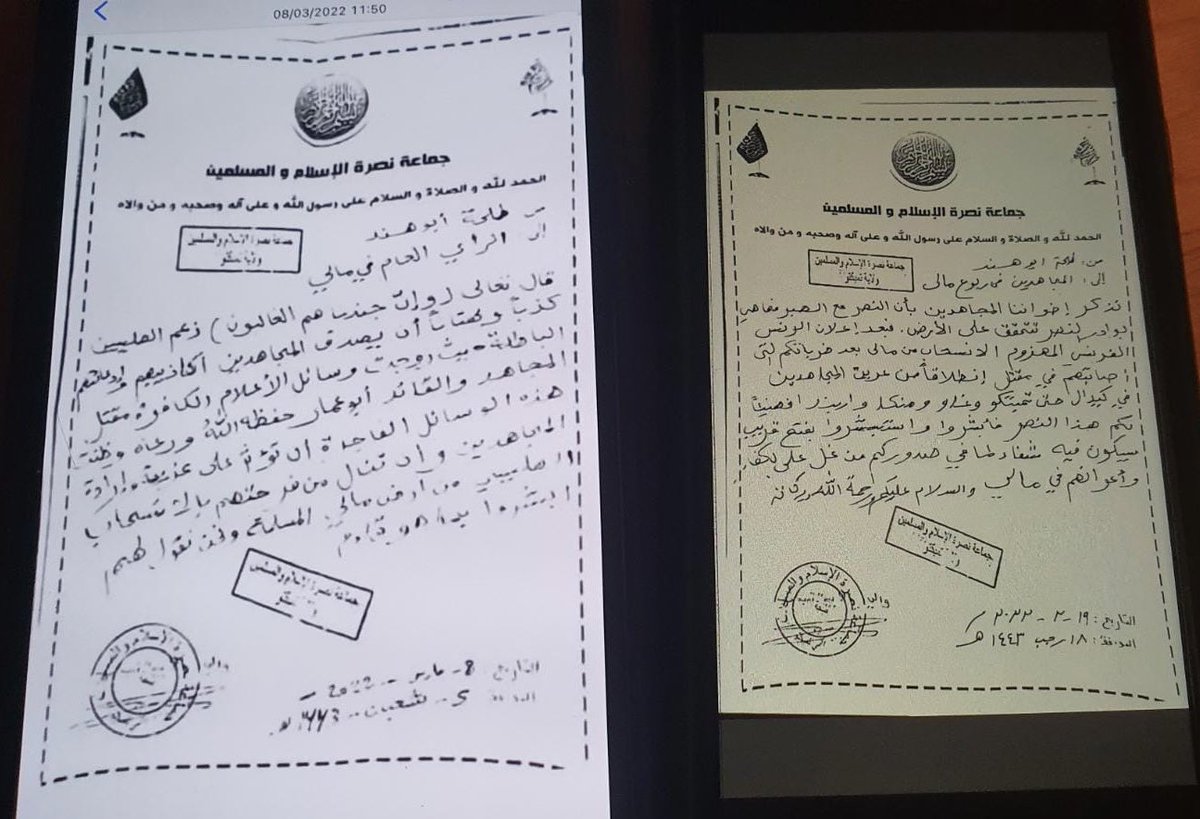 08/03/2022 11:50
جماعة نصرة الإسلام و المسلمين
الحمد لله و الصلاة و السلام على رسول الله و على آله وصحبه و من والاه
من طلحة أبو هند
إلى الراي العام في مالي
جماعة نصرة الإسلام والمسلمين
ولاية تمبكتو
قال تعالى (وإن جندنا هم الغالبون) زعم الصليبين
كذبا وبهتانا أن يصدق المجاهدين أكاذيبهم
الباطلة حيث روجت وسائل الأعلام الكافرة مقتل
المجاهد والقائد أبو عمار حفظه الله ورعاه وظنت
هذه الوسائل الفاجرة أن تؤثر على عزيمة وإرادة
المجاهدين وأن تنال من فرحتهم بإنسحاب
الصليبين من أرض مالي المسلمة ونحن نقول لهم
ابشروا بما
جماعة نصرة الإسلام والمسلمين
والي
التاريخ: 8 - مارس - 2022
شعبان - 1443هـ
جماعة نصرة الإسلام و المسلمين
الحمد لله و الصلاة و السلام على رسول الله و على آله وصحبه و من والاه
من: طلحة ابو هند
إلى: المجاهدين في ربوع مالي
جماعة نصرة الإسلام والمسلمين
ولاية تمبكتو
نذكر إخواننا المجاهدين بأن النصر مع الصبر فها هي
بوادر النصر تتحقق على الأرض، فبعد إعلان الرئيس
الفرنسي المهزوم الانسحاب من مالي بعد ضرباتكم التي
اصابتهم في مقتل إنطلاقا من عرين المجاهدين
في كيدال حتى تمبتكو وغاو ومنكا
بكم هذا النصر فأبشروا واستبشروا بفتح قريب
سيكون فيه شفاء لما في صدوركم من غل على الكفار
وأعوانهم في مالي والسلام عليكم ورحمة الله وبركاته
جماعة نصرة الإسلام والمسلمين
والي
التاريخ: ١٩ - ٢ - ٢٠٢٢
١٨ رجب ١٤٤٣ هـ